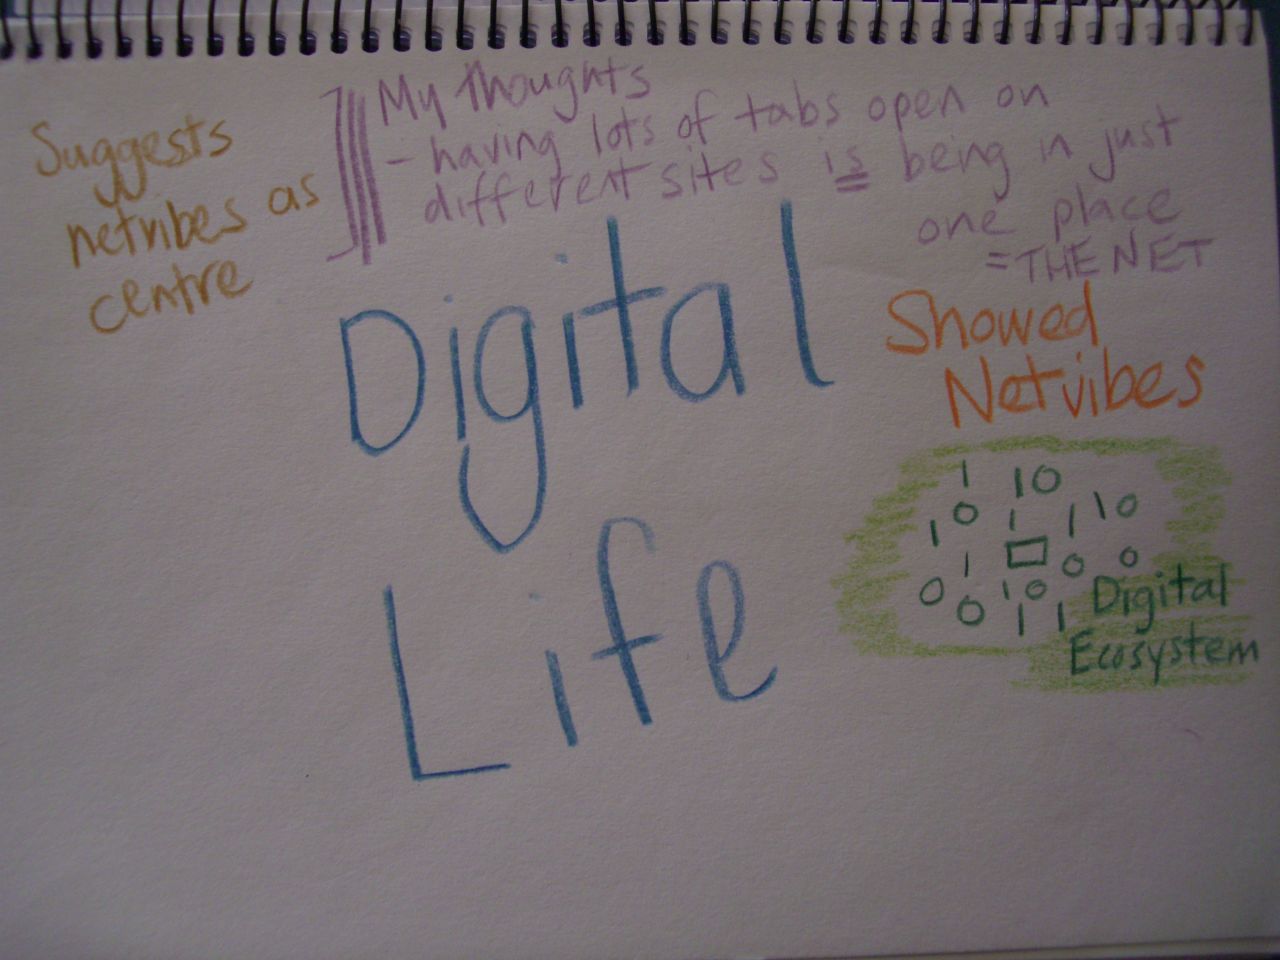 Suggests
netvibes as
centre
My Thoughts
- having lots of tabs open on
different sites is being in just
one place
= THE NET
Digital
Life
Showed
Netvibes
1 10
1 0 1 1 1 0
1 0 0
0 0 1 0 1 1
Digital
Ecosystem